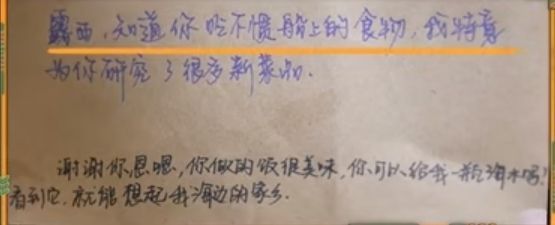 露西，知道你吃不惯船上的食物，我特意
为你研究了很多新菜品.
谢谢你恩恩，你做的饭很美味，你可以给我一瓶海水吗？
看到它，就能想起我海边的家乡.